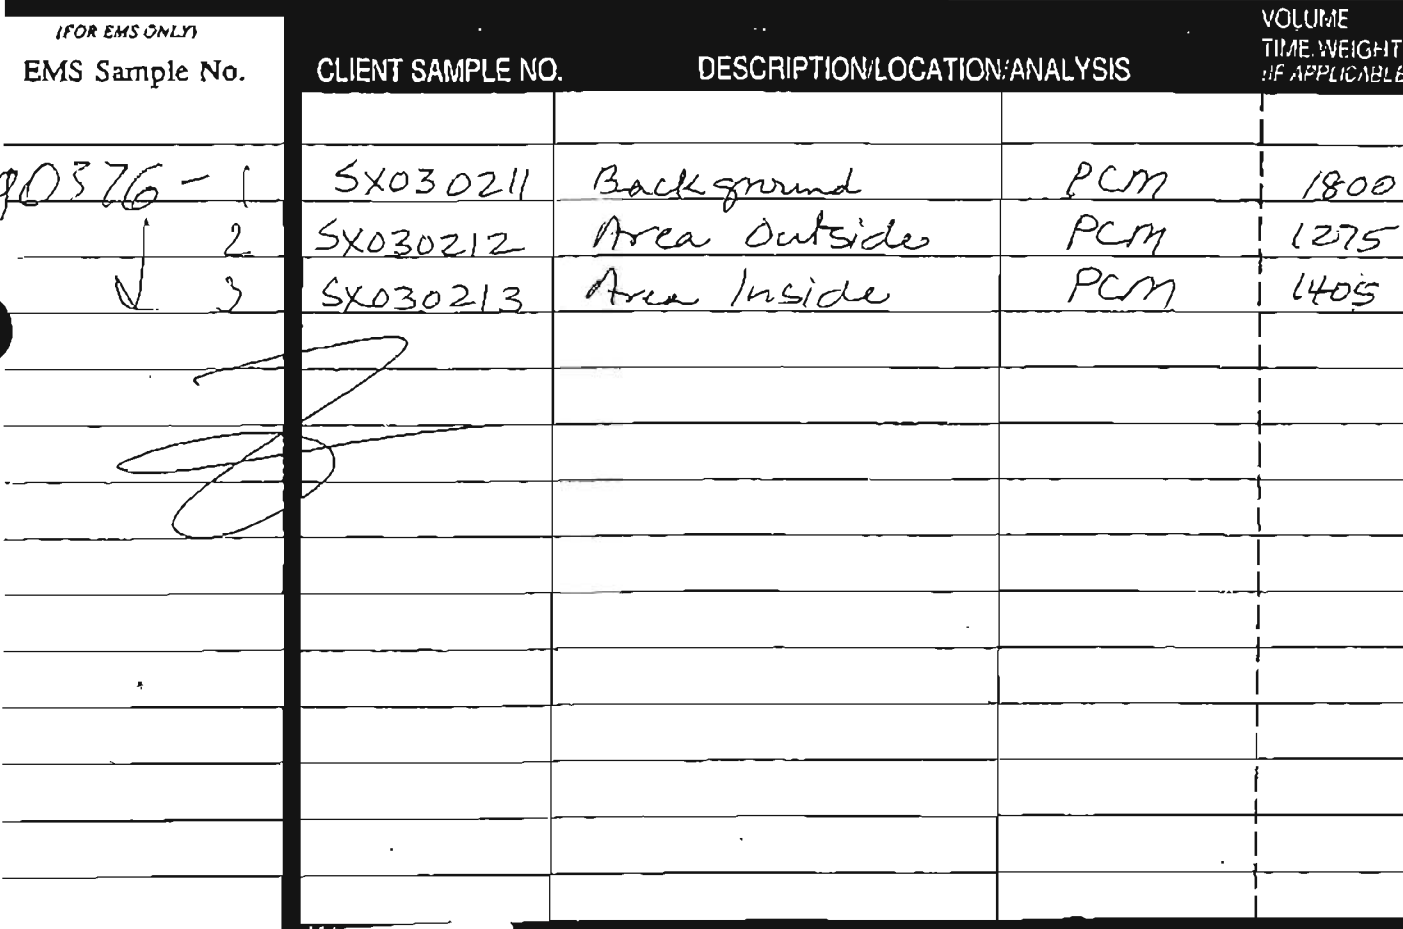 (FOR EMS ONLY)
EMS Sample No.
CLIENT SAMPLE NO.
DESCRIPTION/LOCATION/ANALYSIS
VOLUME
TIME WEIGHT
(IF APPLICABLE
90376-1 SX030211 Background PCM 1800
2 SX030212 Area Outside PCM 1275
3 SX030213 Area Inside PCM 1405